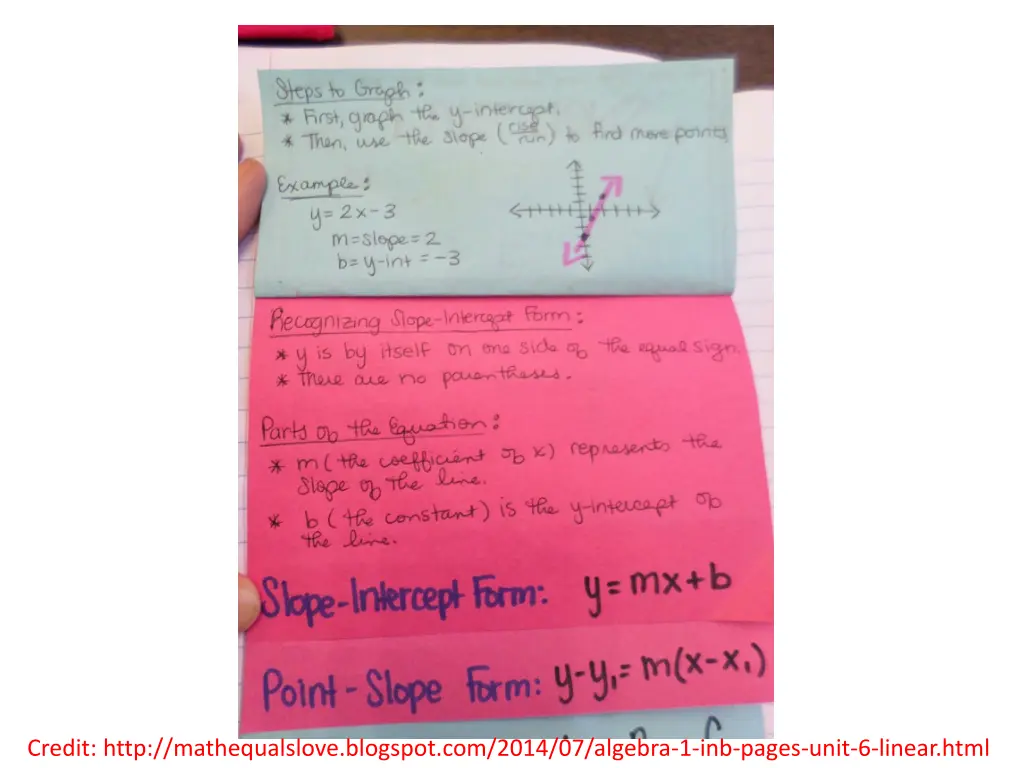 Steps to Graph:
* First, graph the y-intercept.
* Then, use the slope (rise/run) to find more points.
Example:
y = 2x - 3
m = slope = 2
b = y-int = -3
Recognizing Slope-Intercept Form:
* y is by itself on one side of the equal sign.
* There are no parentheses.
Parts of the Equation:
* m (the coefficient of x) represents the
slope of the line.
* b (the constant) is the y-intercept of
the line.
Slope-Intercept Form: y = mx + b
Point-Slope Form: y - y₁ = m(x - x₁)
Credit: http://mathequalslove.blogspot.com/2014/07/algebra-1-inb-pages-unit-6-linear.html